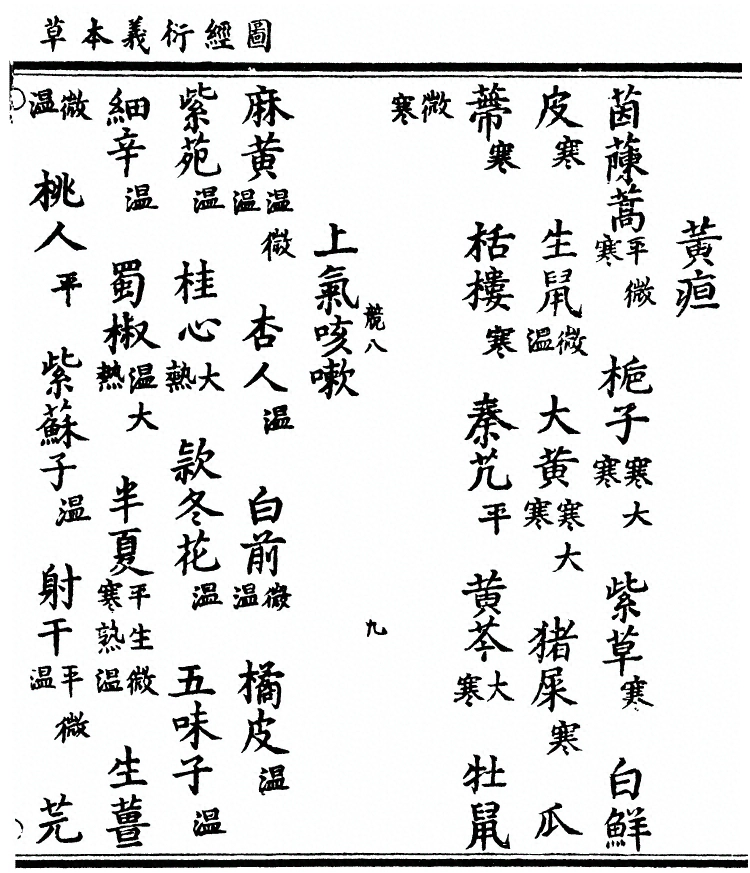 圖經衍義本草
黃疸
茵蔯蒿平微寒 梔子寒大寒 紫草寒 白鮮
皮寒 生鼠微溫 大黃寒大寒 猪屎寒 瓜
蔕寒 栝樓寒 秦艽平 黃芩大寒 牡鼠
微寒
競八 九
上氣咳嗽
麻黃溫微溫 杏人溫 白前微溫 橘皮溫
紫苑溫 桂心大熱 款冬花溫 五味子溫
細辛溫 蜀椒溫大熱 半夏平生微寒熟溫 生薑
微溫 桃人平 紫蘇子溫 射干平微溫 芫